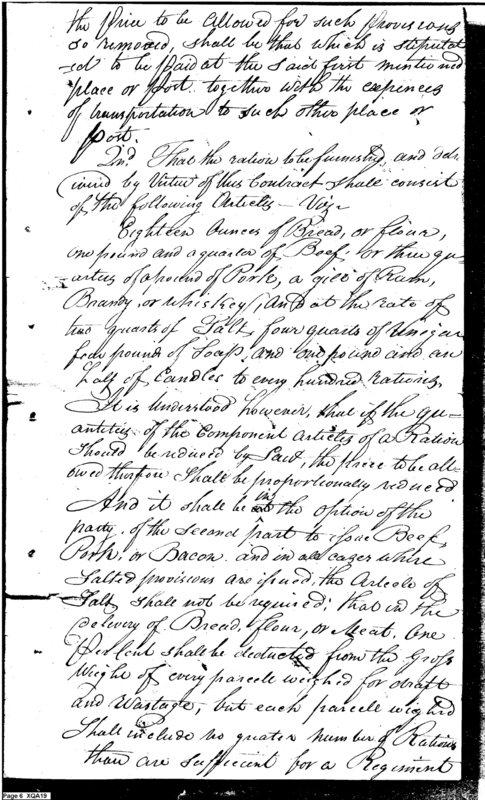 the Price to be allowed for such Provisions
so removed, shall be that which is stiputat
ed to be Paid at the said first mentioned
place or Post together with the expences
of transportation to such other place or
Post.
2nd That the ration to be furnished, and deli
vered by Virtue of this Contract shall consist
of the following Articles - Viz -
Eighteen Ounces of Bread, or flour,
one pound and a quarter of Beef, or three qu
arters of a pound of Pork, a gill of Rum,
Brandy, or whiskey, and at the rate of
two quarts of Salt, four quarts of Vinegar
four pounds of Soap, and one pound and an
half of Candles to every hundred rations,
It is Understood however, that if the qu-
antities of the Component Articles of a Ration
should be reduced by Law, the price to be all-
owed therefore shall be proportionally reduced
And it shall be in the option of the
party of the Second part to issue Beef,
Pork, or Bacon and in all cases where
Salted provisions are issued, the Article of
Salt shall not be required; that in the
delivery of Bread, flour, or Meat, One
Per Cent shall be deducted from the Gross
Weight of every parcell weighed for draft
and Wastage, but each parcell weighed
Shall include no greater number of Rations
than are sufficient for a Regiment
Page 6 XQA19